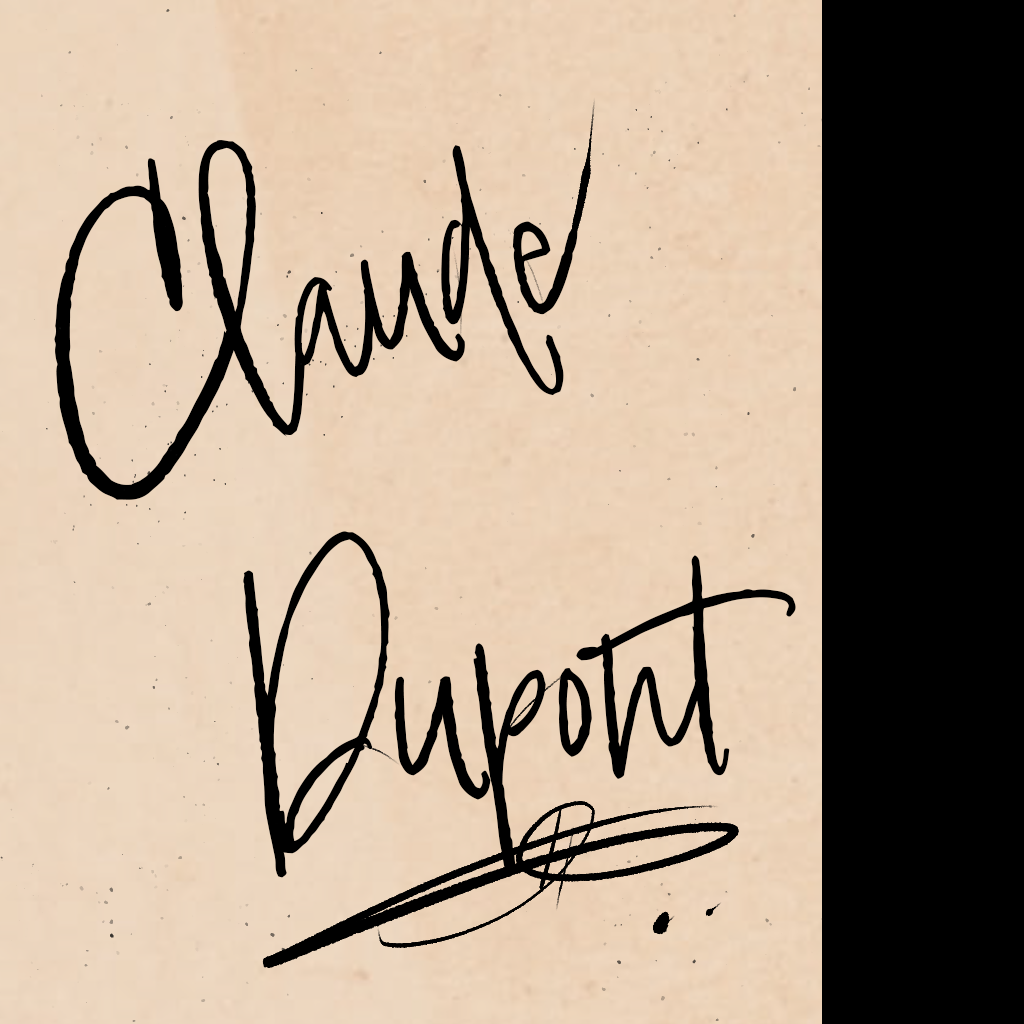 Claude
Dupont